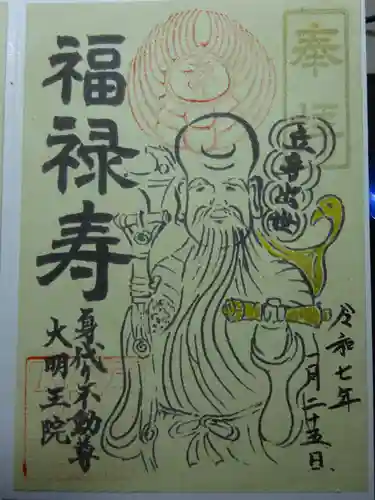 奉拝
福禄寿
身代り不動尊
大明王院
令和七年
一月二十五日